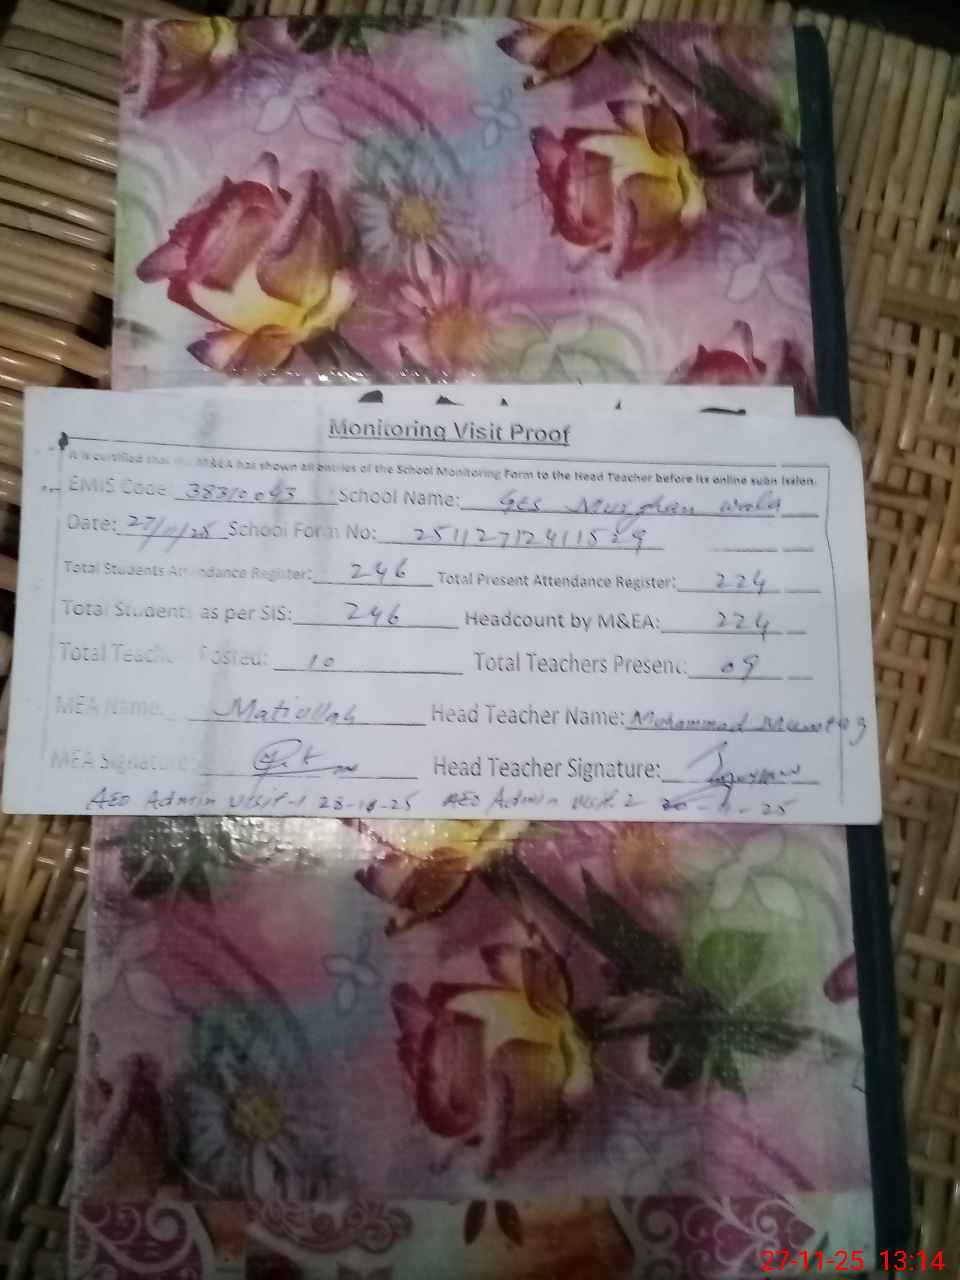 Monitoring Visit Proof
It is certified that the M&EA has shown all entries of the School Monitoring Form to the Head Teacher before its online submission.
EMIS Code: 38310043 School Name: GES Murghan wala
Date: 27/11/25 School Form No: 251127124115
Total Students Attendance Register: 246 Total Present Attendance Register: 224
Total Students as per SIS: 246 Headcount by M&EA: 224
Total Teachers Posted: 10 Total Teachers Present: 09
MEA Name: Matiullah Head Teacher Name: Muhammad Mumtaz
MEA Signature: Head Teacher Signature:
AEO Admin visit-1 28-10-25 AEO Admin visit 2 20-11-25
27-11-25 13:14